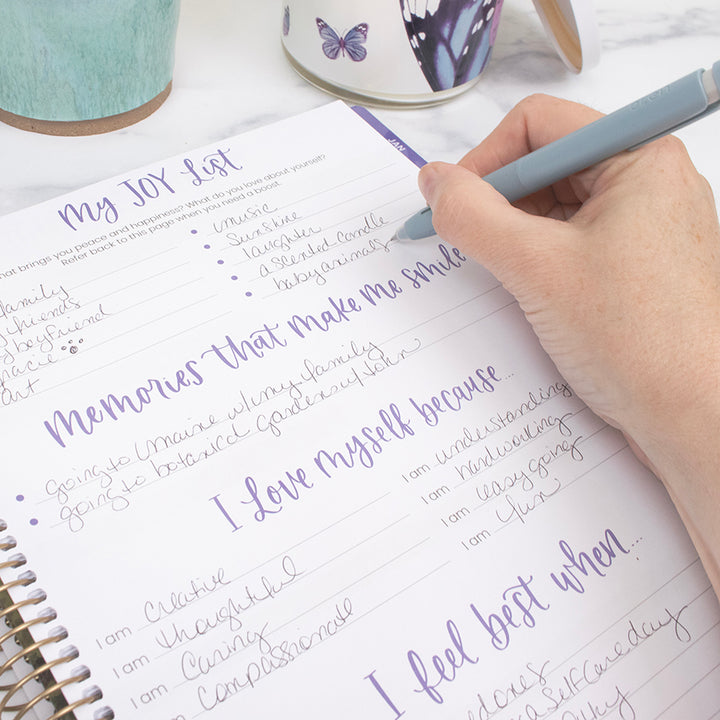 JAN
My JOY List
hat brings you peace and happiness? What do you love about yourself?
Refer back to this page when you need a boost.
family
friends
boyfriend
gracie
art
• music
• Sunshine
• laughter
• a scented candle
• baby animals
Memories that make me smile
• going to Maine w/ my family
• going to botanical gardens w/ John
I Love myself because...
I am creative
I am thoughtful
I am caring
compassionate
I am understanding
I am hardworking
I am easy going
I am fun
I feel best when...
a self care day